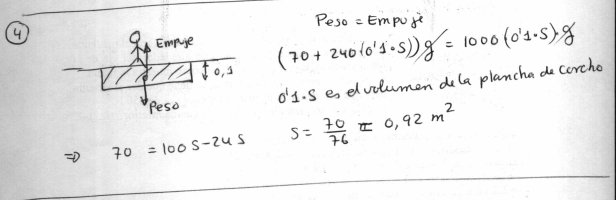 4
Peso = Empuje
Empuje
(70 + 240 (0'1·S)) g = 1000 (0'1·S)·g
0,1
0'1·S es el volumen de la plancha de corcho
Peso
⇒ 70 = 100S - 24S
S = 70/76 = 0,92 m²